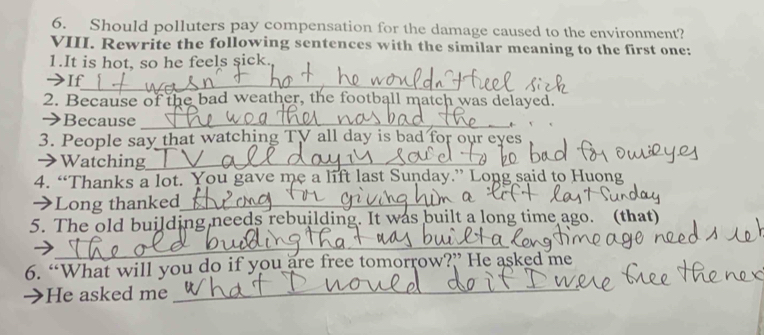 6. Should polluters pay compensation for the damage caused to the environment?
VIII. Rewrite the following sentences with the similar meaning to the first one:
1.It is hot, so he feels sick.
→If it wasn't hot, he wouldn't feel sick
2. Because of the bad weather, the football match was delayed.
→Because the weather was bad the ...
3. People say that watching TV all day is bad for our eyes
→Watching TV all day is said to be bad for our eyes
4. “Thanks a lot. You gave me a lift last Sunday.” Long said to Huong
→Long thanked for giving him a left last Sunday
5. The old building needs rebuilding. It was built a long time ago. (that)
→ The old building that was built a long time ago needs reb
6. “What will you do if you are free tomorrow?” He asked me
→He asked me what I would do if I were free the nex